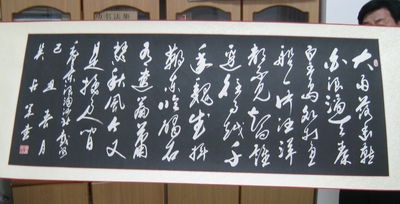 大雨落幽燕
白浪滔天秦
皇岛外打鱼
船一片汪洋
都不见知向谁
边往事越千
年魏武挥
鞭东临碣石
有遗篇萧
瑟秋风今又
是换了人间
毛泽东浪淘沙北戴河
己丑春月
吴占书